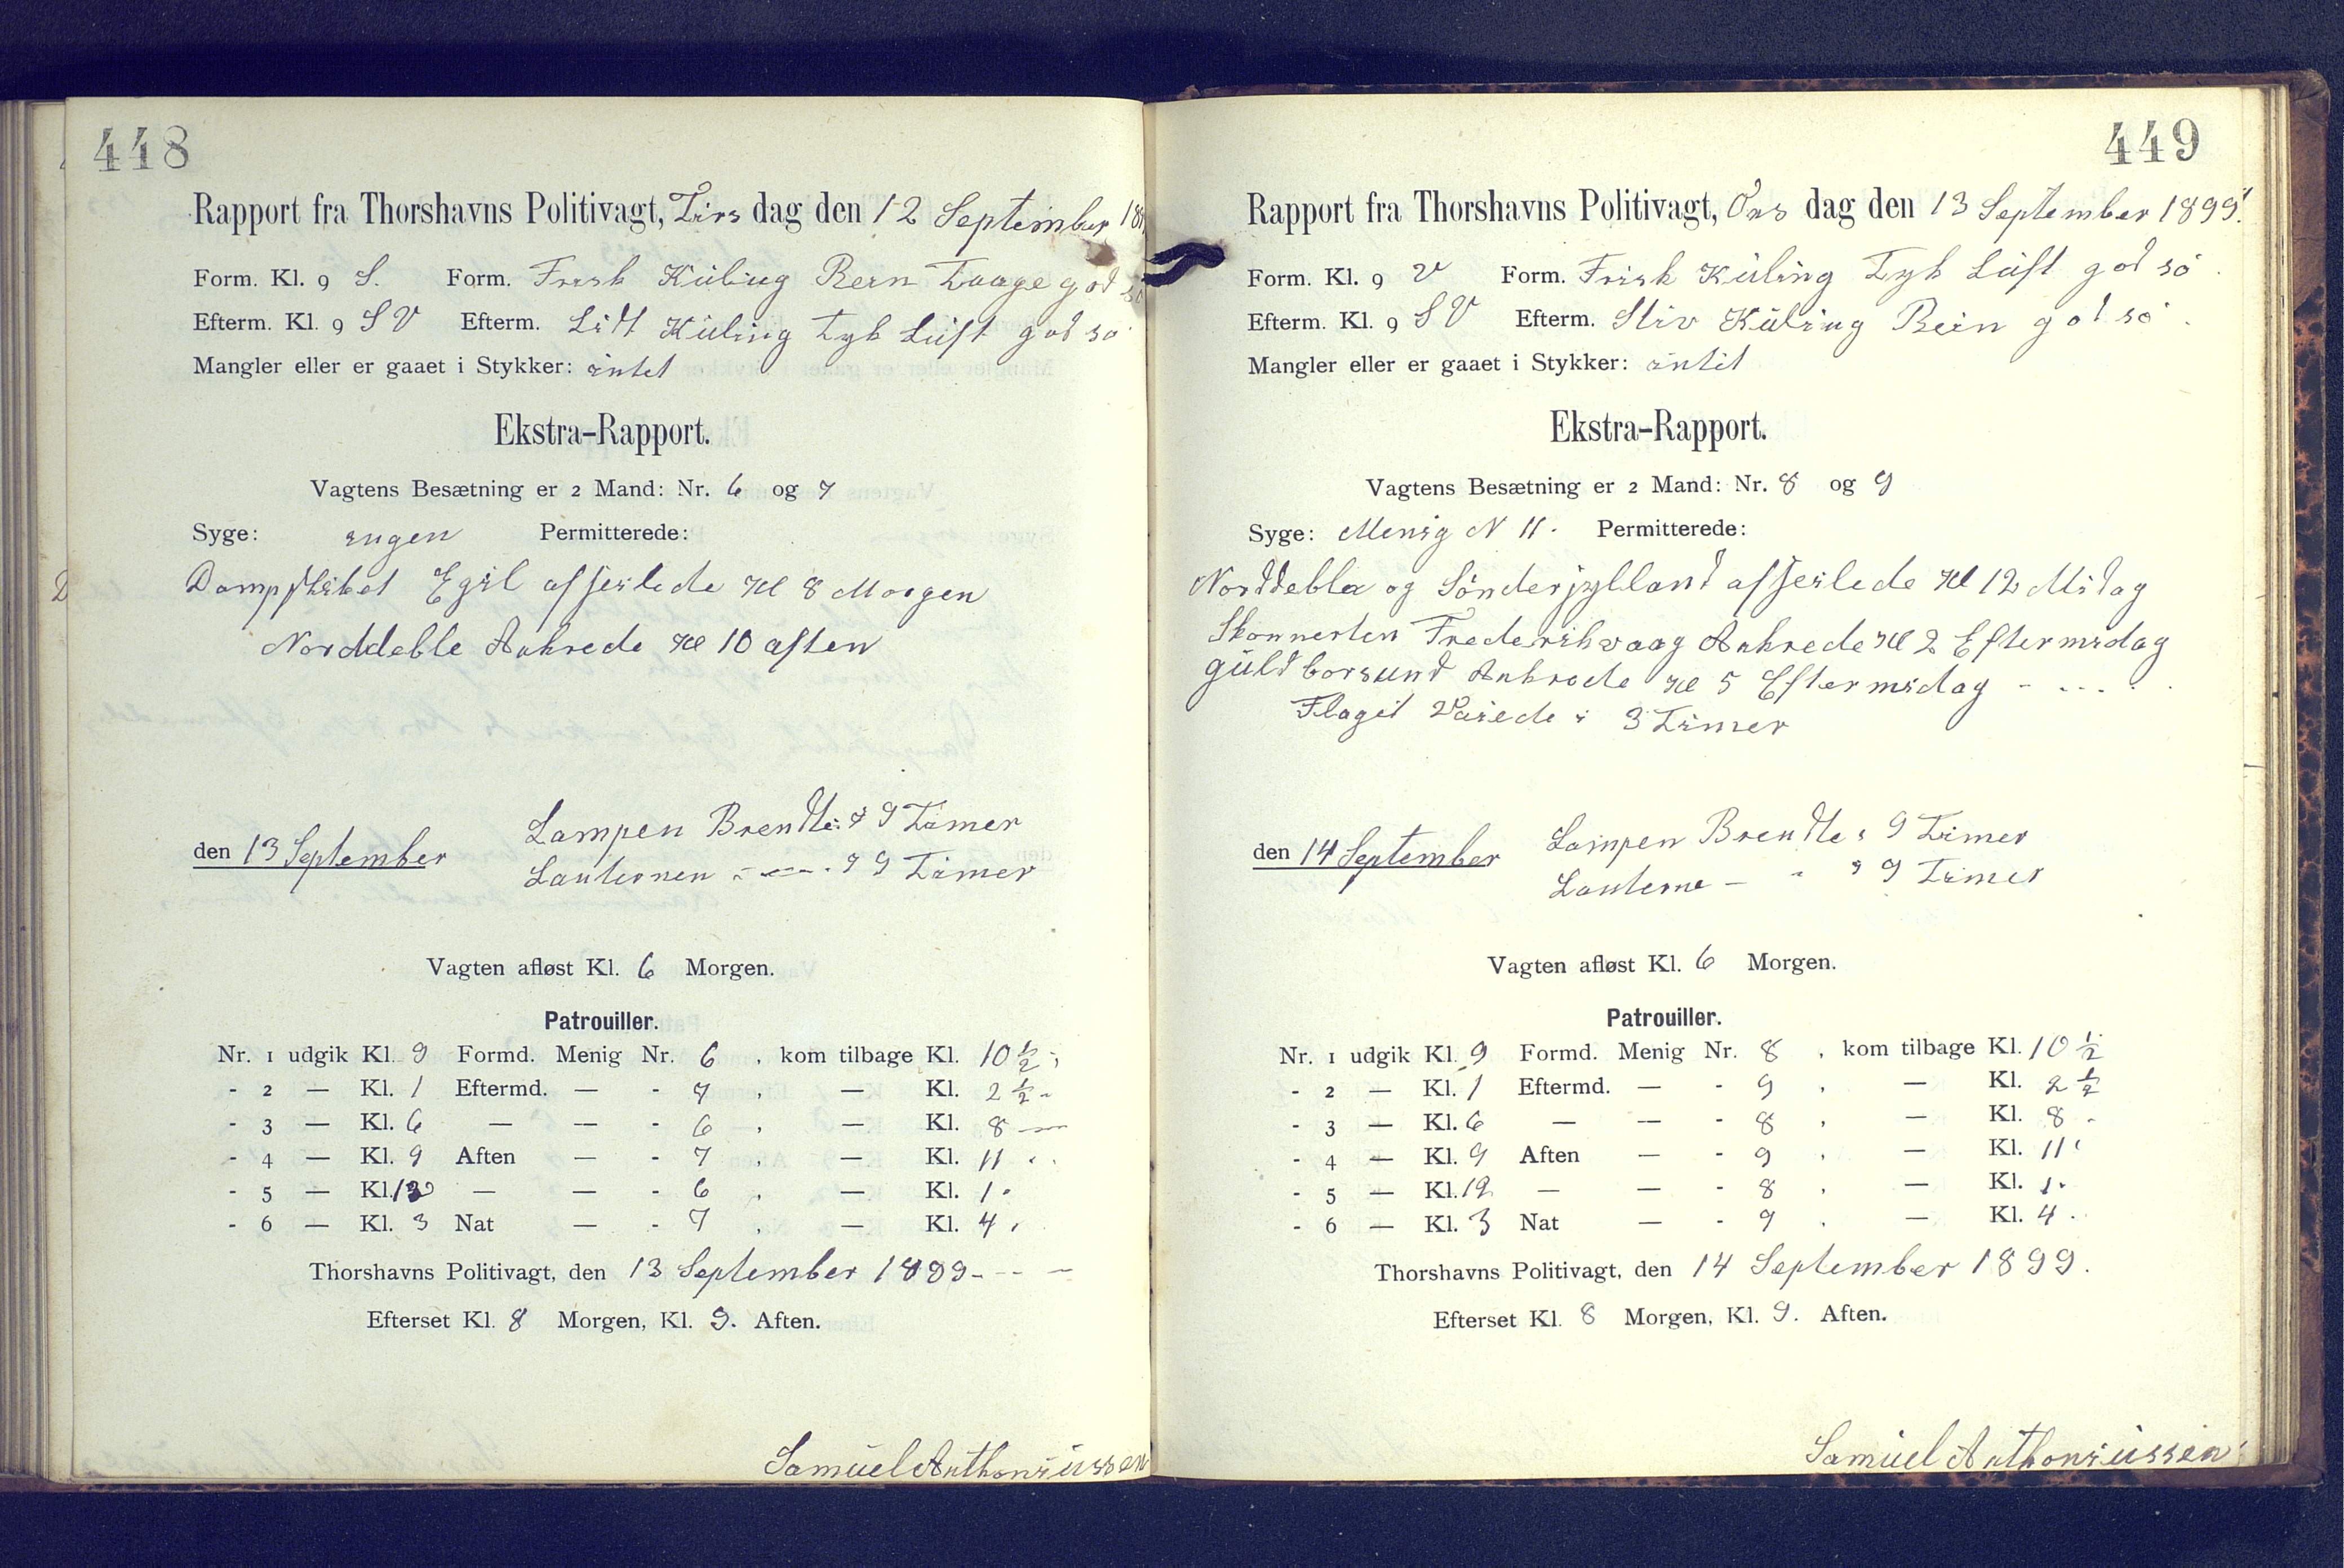 448
Rapport fra Thorshavns Politivagt, Tirs dag den 12 September 18
Form. Kl. 9 S. Form. Frisk Küling Rein Taage god sö
Efterm. Kl. 9 SV Efterm. Lidt Küling Tyk Lüft god sö
Mangler eller er gaaet i Stykker: intet
Ekstra-Rapport.
Vagtens Besætning er 2 Mand: Nr. 6 og 7
Syge: ingen Permitterede:
Dampskibet Egil afseilede Kl 8 Morgen
Norddeble Ankrede Kl 10 aften
den 13 September
Lampen Brendte i 9 Timer
Lanternen - — - i 9 Timer
Vagten afløst Kl. 6 Morgen.
Patrouiller.
Nr. 1 udgik Kl. 9 Formd. Menig Nr. 6, kom tilbage Kl. 10 ½
- 2 — Kl. 1 Eftermd. — - 7, — Kl. 2 ½ -
- 3 — Kl. 6 — — - 6, — Kl. 8 —
- 4 — Kl. 9 Aften — - 7, — Kl. 11
- 5 — Kl. 12 — — - 6, — Kl. 1.
- 6 — Kl. 3 Nat — - 7, — Kl. 4.
Thorshavns Politivagt, den 13 September 1899 - - - —
Efterset Kl. 8 Morgen, Kl. 9. Aften.
Samüel Anthoniüssen
449
Rapport fra Thorshavns Politivagt, Ons dag den 13 September 1899.
Form. Kl. 9 V Form. Frisk Küling Tyk Lüft god sö.
Efterm. Kl. 9 SV Efterm. Stiv Küling Rein god sö.
Mangler eller er gaaet i Stykker: intet
Ekstra-Rapport.
Vagtens Besætning er 2 Mand: Nr. 8 og 9
Syge: Menig N 11. Permitterede:
Norddebla og Sönderjylland afseilede Kl 12 Midag
Skonnerten Frederikvaag Ankrede Kl 2 Eftermidag
güldborsund Ankrede Kl 5 Eftermidag - - - -
Flaget Vaiede i 3 Timer
den 14 September
Lampen Brendte i 9 Timer
Lanterne — - i 9 Timer
Vagten afløst Kl. 6 Morgen.
Patrouiller.
Nr. 1 udgik Kl. 9 Formd. Menig Nr. 8, kom tilbage Kl. 10 ½
- 2 — Kl. 1 Eftermd. — - 9, — Kl. 2 ½
- 3 — Kl. 6 — — - 8, — Kl. 8 -
- 4 — Kl. 9 Aften — - 9, — Kl. 11
- 5 — Kl. 12 — — - 8, — Kl. 1.
- 6 — Kl. 3 Nat — - 9, — Kl. 4.
Thorshavns Politivagt, den 14 September 1899.
Efterset Kl. 8 Morgen, Kl. 9. Aften.
Samüel Anthoniüssen